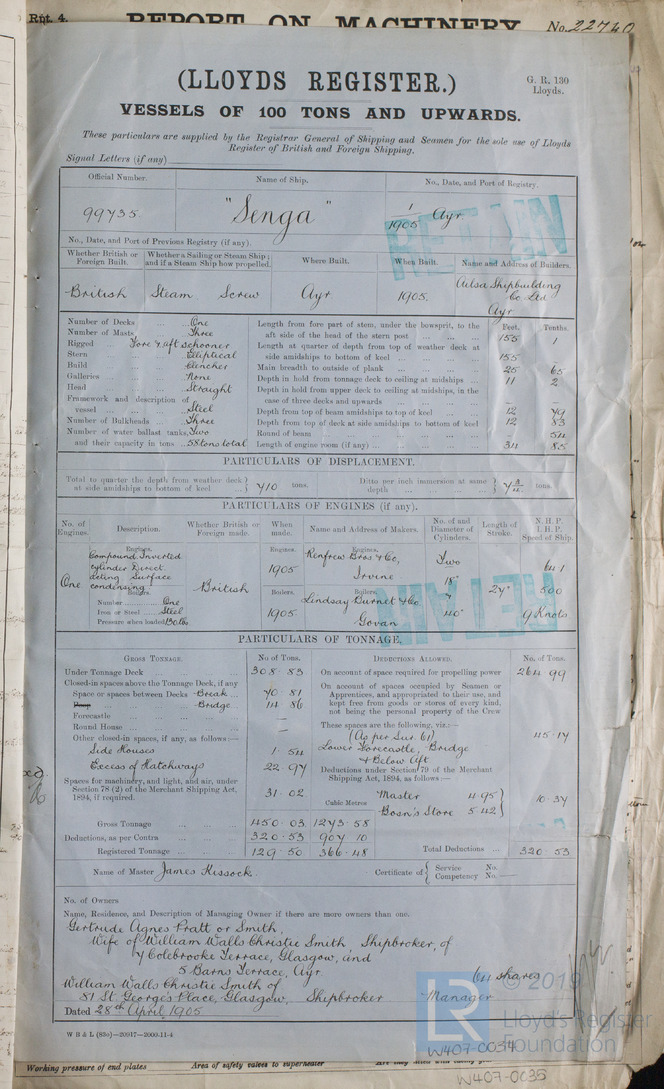 Rpt. 4. REPORT ON MACHINERY No. 22740
(LLOYDS REGISTER.)
G. R. 130
Lloyds.
VESSELS OF 100 TONS AND UPWARDS.
These particulars are supplied by the Registrar General of Shipping and Seamen for the sole use of Lloyds
Register of British and Foreign Shipping.
Signal Letters (if any)
Official Number. Name of Ship. No., Date, and Port of Registry.
99735 "Senga" 1/1905 Ayr
RETAIN
No., Date, and Port of Previous Registry (if any).
Whether British or Foreign Built. Whether a Sailing or Steam Ship; and if a Steam Ship how propelled. Where Built. When Built. Name and Address of Builders.
British Steam Screw Ayr 1905 Ailsa Shipbuilding Co Ltd Ayr
Feet. Tenths.
Number of Decks ... One Length from fore part of stem, under the bowsprit, to the
Number of Masts ... Three aft side of the head of the stern post ... 155 1
Rigged Fore & aft schooner Length at quarter of depth from top of weather deck at
Stern ... Elliptical side amidships to bottom of keel ... 155
Build ... Clencher Main breadth to outside of plank ... 25 65
Galleries ... None Depth in hold from tonnage deck to ceiling at midships ... 11 2
Head ... Straight Depth in hold from upper deck to ceiling at midships, in the
Framework and description of case of three decks and upwards ... –
vessel ... Steel Depth from top of beam amidships to top of keel ... 12 49
Number of Bulkheads Three Depth from top of deck at side amidships to bottom of keel 12 83
Number of water ballast tanks, Two Round of beam ... 54
and their capacity in tons .. 58 tons total Length of engine room (if any) ... 34 85
PARTICULARS OF DISPLACEMENT.
Total to quarter the depth from weather deck at side amidships to bottom of keel ... 410 tons. Ditto per inch immersion at same depth ... tons.
PARTICULARS OF ENGINES (if any).
No. of Engines. Description. Whether British or Foreign made. When made. Name and Address of Makers. No. of and Diameter of Cylinders. Length of Stroke. N.H.P. I.H.P. Speed of Ship.
One
Engines.
Compound Inverted
cylinder Direct
acting Surface
condensing
Boilers.
Number ... One
Iron or Steel ... Steel
Pressure when loaded 130 lbs
British
Engines.
1905
Boilers.
1905
Engines.
Renfrew Bros & Co,
Irvine
Boilers.
Lindsay Burnet & Co
Govan
Two
18"
&
40"
27"
641
500
9 Knots
RETAIN
PARTICULARS OF TONNAGE.
GROSS TONNAGE. No of Tons. DEDUCTIONS ALLOWED. No. of Tons.
Under Tonnage Deck ... 308.83 On account of space required for propelling power 264.99
Closed-in spaces above the Tonnage Deck, if any On account of spaces occupied by Seamen or
Space or spaces between Decks Break ... 70.81 Apprentices, and appropriated to their use, and
Poop Bridge ... 14.86 kept free from goods or stores of every kind,
Forecastle ... – not being the personal property of the Crew
Round House ... – These spaces are the following, viz.:—
Other closed-in spaces, if any, as follows:— (As per Sur. 61) 45.17
Side Houses 1.54 Lower Forecastle, Bridge
Excess of Hatchways 22.97 & Below Aft
Spaces for machinery, and light, and air, under Deductions under Section 79 of the Merchant
Section 78 (2) of the Merchant Shipping Act, Shipping Act, 1894, as follows:—
1894, if required. 31.02 Cubic Metres Master 4.95 10.37
Bosn's Store 5.42
Gross Tonnage ... 450.03 1273.58
Deductions, as per Contra ... 320.53 907.10 Total Deductions ... 320.53
Registered Tonnage ... 129.50 366.48
Name of Master James Kissock. Certificate of Service No. Competency No. —
No. of Owners
Name, Residence, and Description of Managing Owner if there are more owners than one.
Gertrude Agnes Pratt or Smith,
Wife of William Walls Christie Smith, Shipbroker, of
7 Colebrooke Terrace, Glasgow, and
5 Barns Terrace, Ayr. 64 shares
William Walls Christie Smith of
51 St. George's Place, Glasgow, Shipbroker Manager
Dated 28th April 1905
© 2019
LR
Lloyd's Register
Foundation
W B & L (83o)—20917—2000-11-4
W407-0034
Working pressure of end plates Area of safety valves to superheater
W407-0035